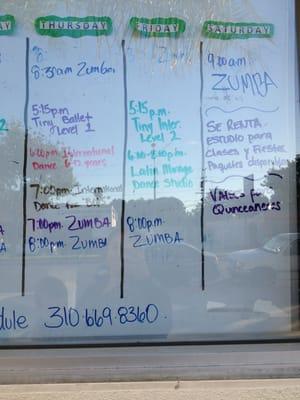 THURSDAY
8:30am Zumba
5:15 p.m.
Tiny Ballet
Level 1
6:00pm International
Dance 6-12 years
7:00pm International
Dance
7:00pm ZUMBA
8:00pm ZUMBA
FRIDAY
5:15 p.m.
Tiny Inter.
Level 2
Latin Mirage
Dance Studio
8:00pm
ZUMBA
SATURDAY
9:00am
ZUMBA
SE RENTA
ESTUDIO para
Clases y Fiestas
Paquetes disponibles
Valses for
Quinceañeras
310.669.8360